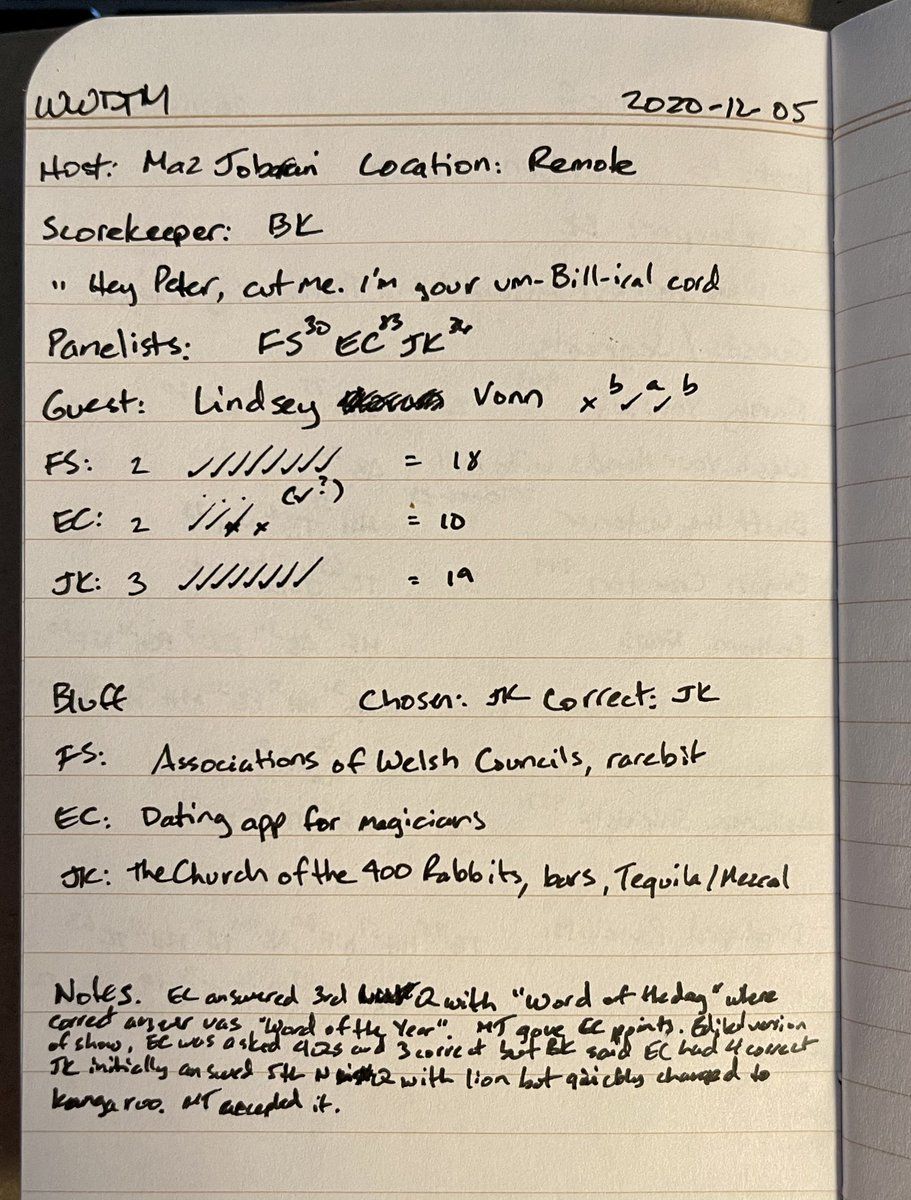 WWDTM 2020-12-05
Host: Maz Jobrani Location: Remote
Scorekeeper: BK
" Hey Peter, cut me. I'm your um-Bill-ical cord
Panelists: FS 30 EC 33 JK
Guest: Lindsey Vonn x b ✓ a ✓ b
FS: 2 ✓✓✓✓✓✓✓✓ = 18
EC: 2 ✓✓✓ x x (✓?) = 10
JK: 3 ✓✓✓✓✓✓✓✓ = 19
Bluff Chosen: JK Correct: JK
FS: Associations of Welsh Councils, rarebit
EC: Dating app for magicians
JK: The Church of the 400 Rabbits, bars, Tequila/Mezcal
Notes. EC answered 3rd Q with "Word of the day" where
correct answer was "Word of the Year". MJ gave EC points. Edited version
of show, EC was asked 4 Qs and 3 correct but BK said EC had 4 correct
JK initially answered 5th Q with lion but quickly changed to
kangaroo. MJ accepted it.